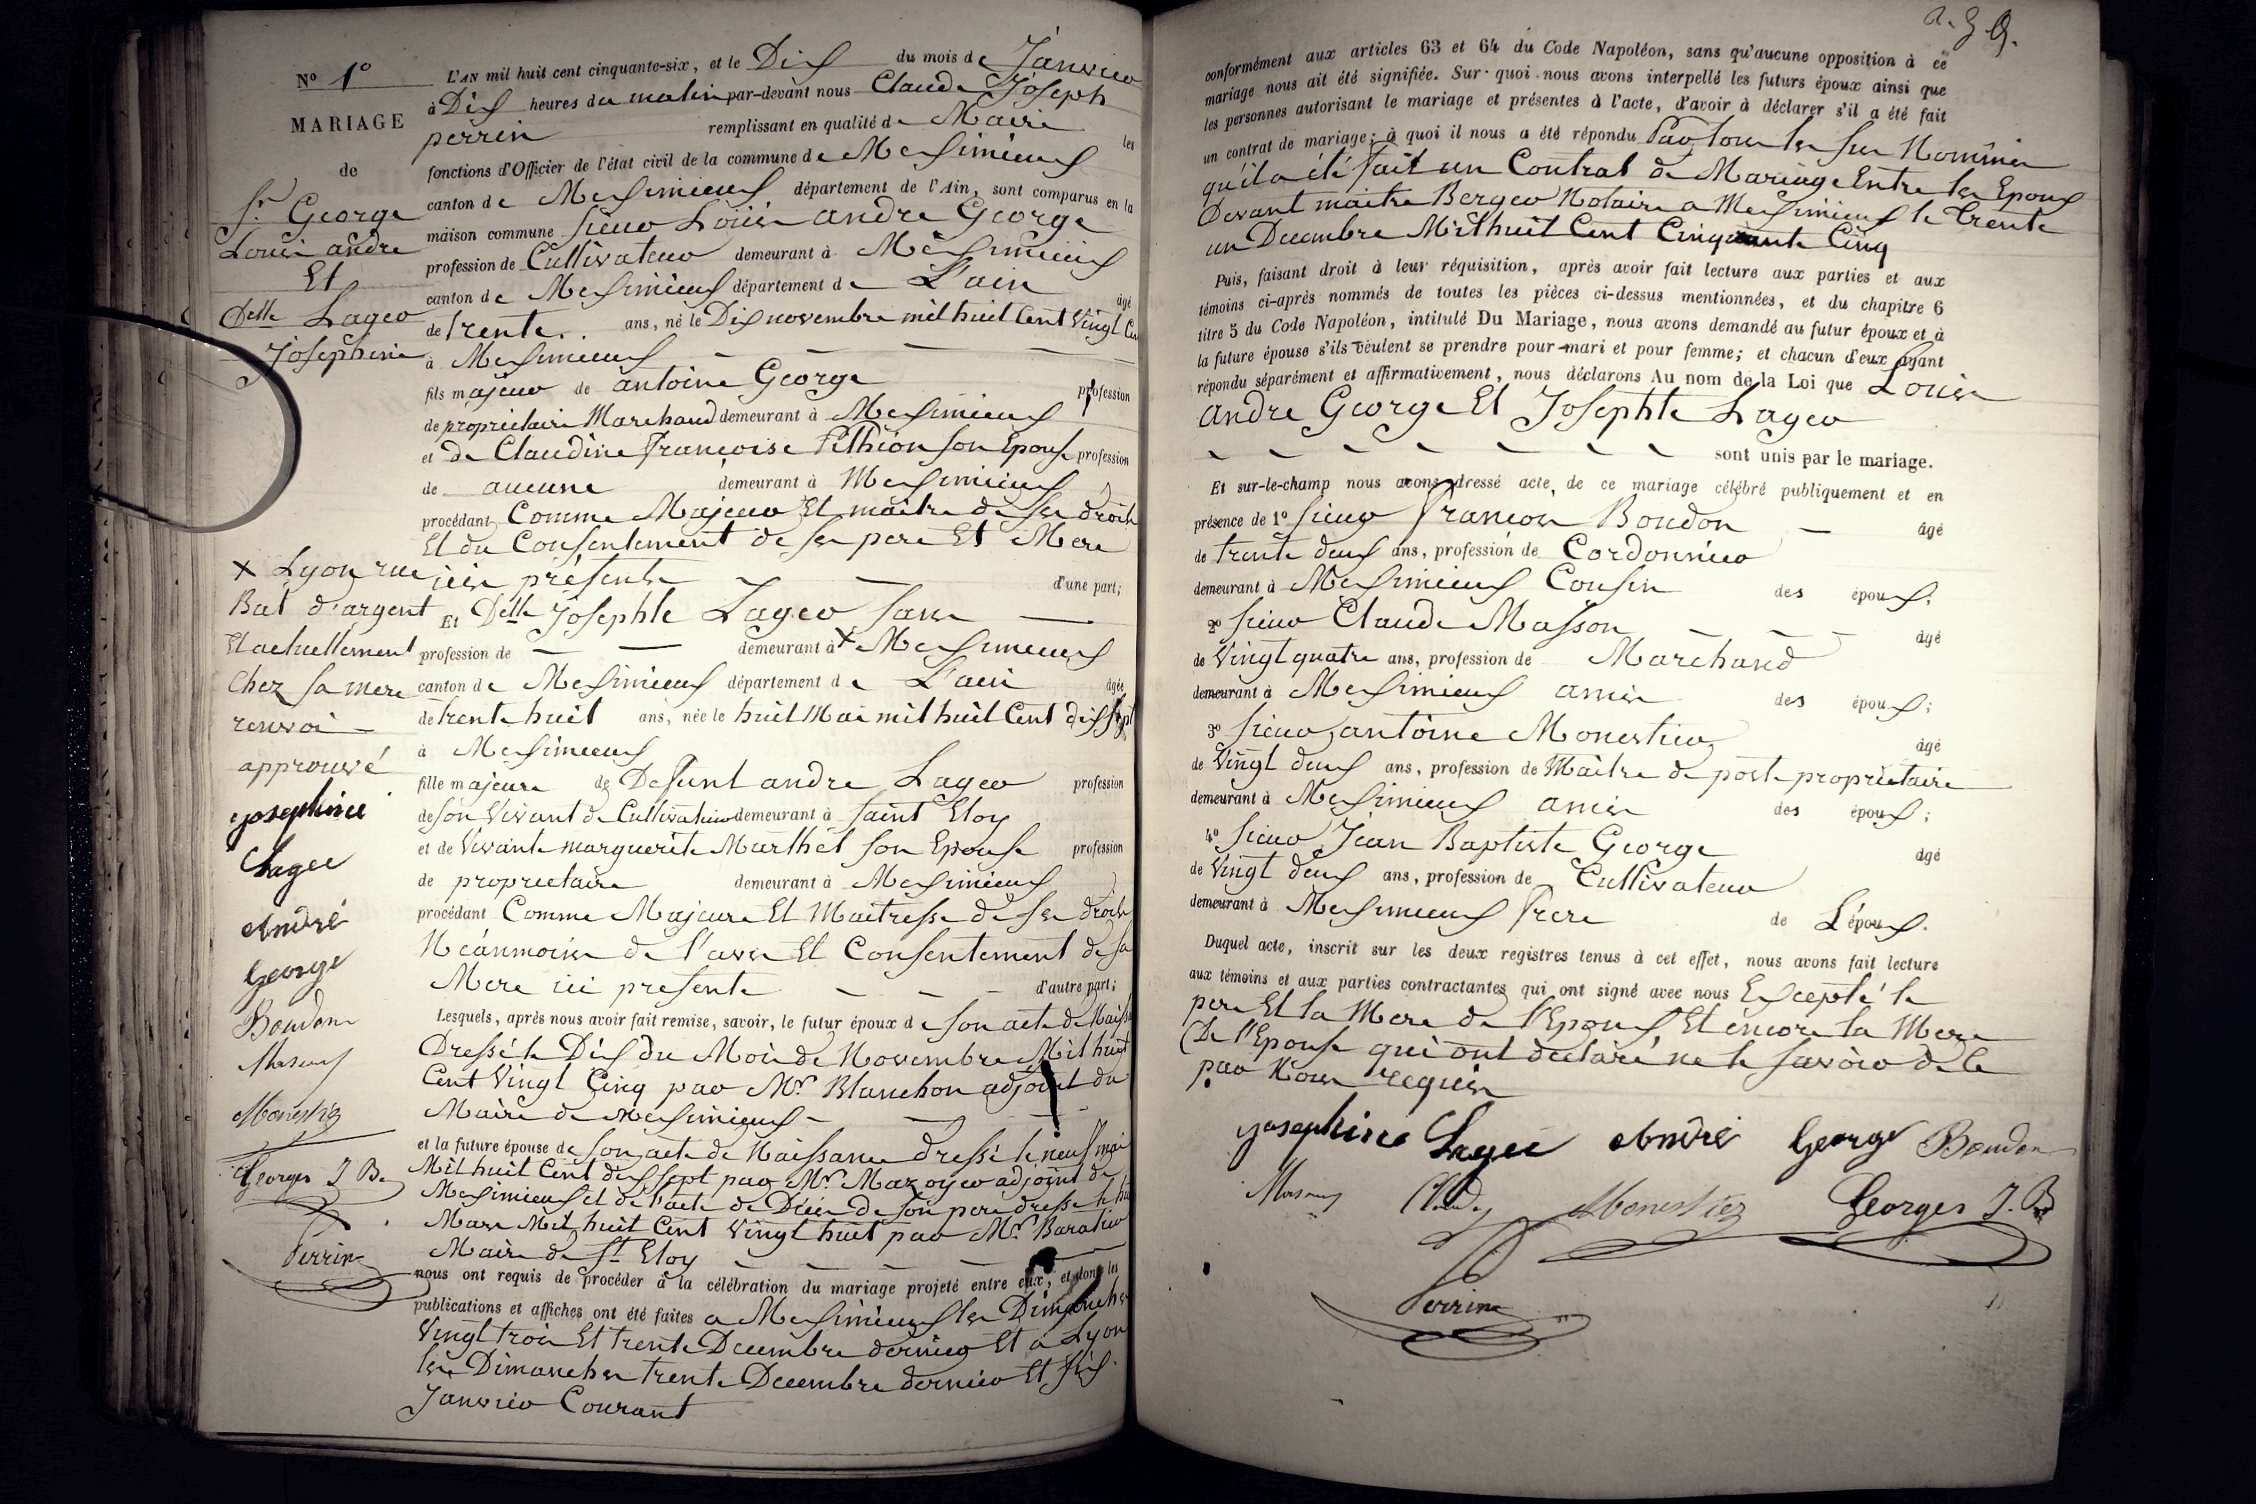 N° 1°
MARIAGE
de
Sr George
Louis andre
Et
Delle Lager
Josephine
L'AN mil huit cent cinquante-six, et le Dix du mois de Janvier
à Dix heures du matin par-devant nous Claude Joseph
perrin remplissant en qualité de Maire les
fonctions d'Officier de l'état civil de la commune de Meximieux
canton de Meximieux département de l'Ain, sont comparus en la
maison commune Sieur Louis andre George
profession de Cultivateur demeurant à Meximieux
canton de Meximieux département de L'ain âgé
de trente ans, né le Dix novembre mil huit Cent Vingt Cinq
à Meximieux
fils majeur de antoine George profession
de propriétaire Marchand demeurant à Meximieux
et de Claudine francoise Pethion son Epouse profession
de aucune demeurant à Meximieux
procédant Comme Majeur Et maître de ses droits
Et du Consentement de ses pere Et Mere
ici présents d'une part;
Et Delle Josephte Lager sans
profession de demeurant à x Meximieux
canton de Meximieux département de L'ain âgée
de trente huit ans, née le huit Mai mil huit Cent dix sept
à Meximieux
fille majeure de Defunt andre Lager profession
de son Vivant de Cultivateur demeurant à Saint Eloy
et de Vivante marguerite Marthet son Epouse profession
de propriétaire demeurant à Meximieux
procédant Comme Majeure Et Maitresse de ses droits
Néanmoins de l'avis Et Consentement de sa
Mere ici présente d'autre part;
Lesquels, après nous avoir fait remise, savoir, le futur époux de son acte de Naiss
Dressé le Dix du Mois de Novembre Mil huit
Cent Vingt Cinq par Mr Blanchon adjoint du
Maire de Meximieux
et la future épouse de son acte de Naissance dressé le neuf mai
Mil huit Cent dix sept par Mr Mazoyer adjoint de
Meximieux et de l'acte de Décès de son pere dressé le
Mars Mil huit Cent Vingt huit par Mr Baratier
Maire de St Eloy
nous ont requis de procéder à la célébration du mariage projeté entre eux, et dont les
publications et affiches ont été faites a Meximieux les Dimanches
Vingt trois Et trente Decembre dernier Et a Lyon
les Dimanches trente Decembre dernier Et Six
Janvier Courant
x Lyon rue
Bat d'argent
Et actuellement
Chez sa mere
renvoi
approuvé
josephine
Lager
André
George
Boudon
Masson
Monestiez
Georges J B
Perrin
conformément aux articles 63 et 64 du Code Napoléon, sans qu'aucune opposition à ce
mariage nous ait été signifiée. Sur quoi nous avons interpellé les futurs époux ainsi que
les personnes autorisant le mariage et présentes à l'acte, d'avoir à déclarer s'il a été fait
un contrat de mariage; à quoi il nous a été répondu Par tous les sus Nommés
qu'il a été fait un Contrat de Mariage Entre les Epoux
Devant maitre Berger Notaire a Meximieux le trente
un Decembre Mil huit Cent Cinquante Cinq
Puis, faisant droit à leur réquisition, après avoir fait lecture aux parties et aux
témoins ci-après nommés de toutes les pièces ci-dessus mentionnées, et du chapitre 6
titre 5 du Code Napoléon, intitulé Du Mariage, nous avons demandé au futur époux et à
la future épouse s'ils veulent se prendre pour mari et pour femme; et chacun d'eux ayant
répondu séparément et affirmativement, nous déclarons Au nom de la Loi que Louis
andre George Et Josephte Lager
sont unis par le mariage.
Et sur-le-champ nous avons dressé acte de ce mariage célébré publiquement et en
présence de 1° Sieur François Boudon âgé
de trente deux ans, profession de Cordonnier
demeurant à Meximieux Cousin des époux;
2° Sieur Claude Masson âgé
de Vingt quatre ans, profession de Marchand
demeurant à Meximieux amis des époux;
3° Sieur antoine Monestier âgé
de Vingt deux ans, profession de Maître de poste propriétaire
demeurant à Meximieux amis des époux;
4° Sieur Jean Baptiste George âgé
de Vingt deux ans, profession de Cultivateur
demeurant à Meximieux frere de L'époux.
Duquel acte, inscrit sur les deux registres tenus à cet effet, nous avons fait lecture
aux témoins et aux parties contractantes qui ont signé avec nous Excepté le
pere Et la Mere de l'Epoux Et encore la Mere
De l'Epouse qui ont déclaré ne le savoir de ce
par Nous requis
josephine Lager André George Boudon
Masson Monestiez Georges J. B
Perrin